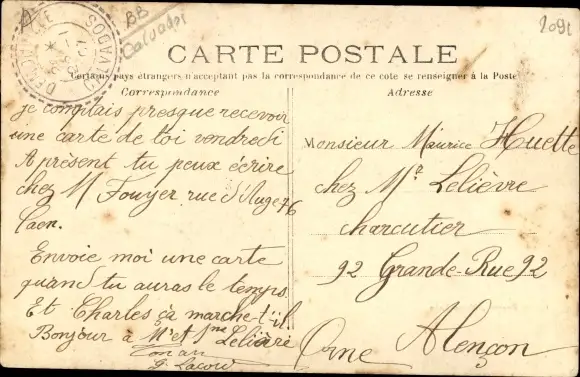 BB
Calvados
209L
CALVADOS
CARTE POSTALE
Certains pays étrangers n'acceptant pas la correspondance de ce cote se renseigner à la Poste
Correspondance
Adresse
je comptais presque recevoir
une carte de toi vendredi
A présent tu peux écrire
chez M Fouyer rue d'Auge 76
Caen.
Envoie moi une carte
quand tu auras le temps
Et Charles ça marche-t-il.
Bonjour à Mr et Mme Lelièvre
Ton ami
G. Lacour
Monsieur Maurice Huette
chez Mr Lelièvre
charcutier
92 Grande-Rue 92
Orne Alençon